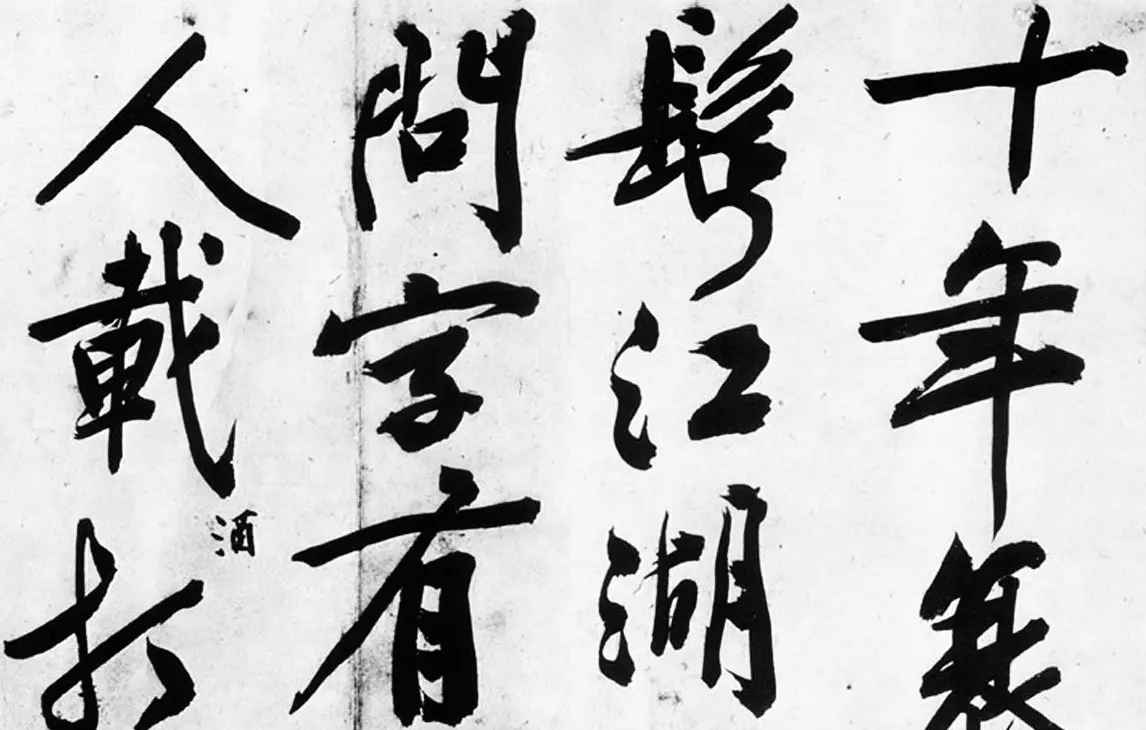 十年
髩江湖
問字有
人載酒